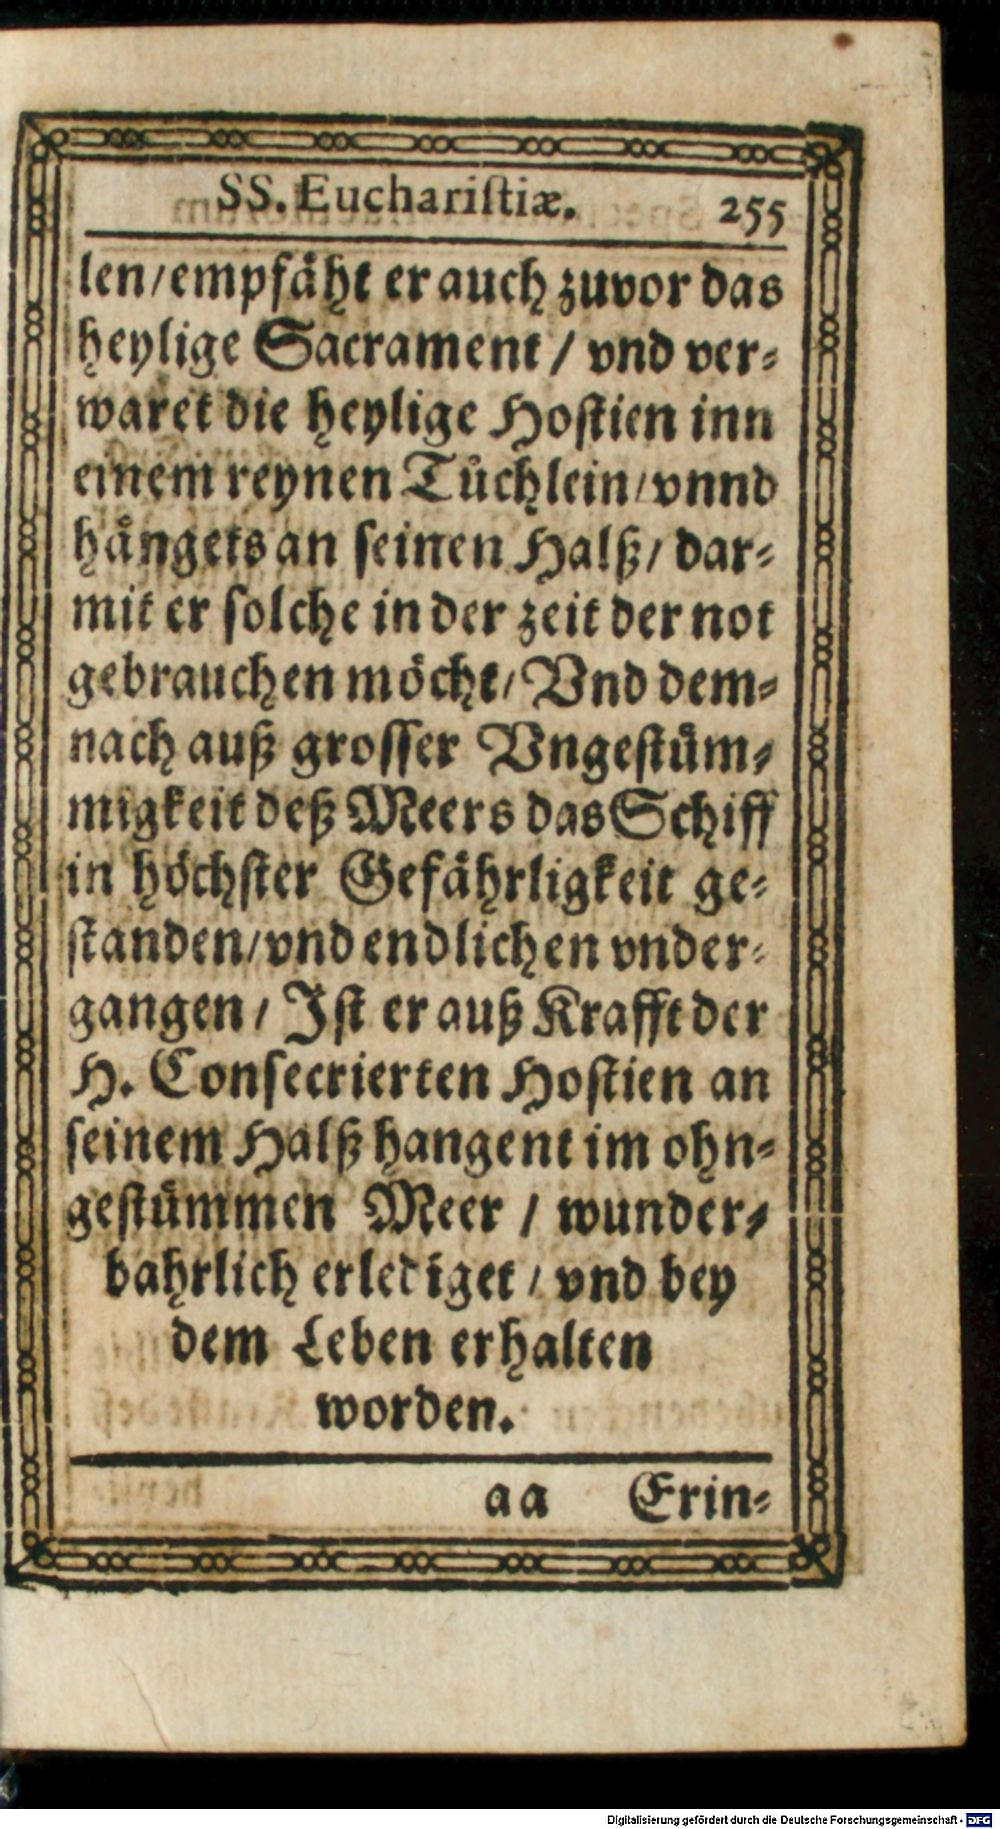 SS. Euchariſtiæ. 255
len/empfäht er auch zuvor das
heylige Sacrament / vnd ver-
waret die heylige Hoſtien inn
einem reynen Tuͤchlein/vnnd
haͤngets an ſeinen Halß/ dar-
mit er ſolche in der zeit der not
gebrauchen moͤcht/ Vnd dem-
nach auß groſſer Vngeſtuͤm-
migkeit deß Meers das Schiff
in hoͤchſter Gefaͤhrligkeit ge-
ſtanden/vnd endlichen vnder-
gangen / Jſt er auß Krafft der
H. Conſecrierten Hoſtien an
ſeinem Halß hangent im ohn-
geſtuͤmmen Meer / wunder-
bahrlich erlediget / vnd bey
dem Leben erhalten
worden.
aa Erin-
Digitalisierung gefördert durch die Deutsche Forschungsgemeinschaft - DFG